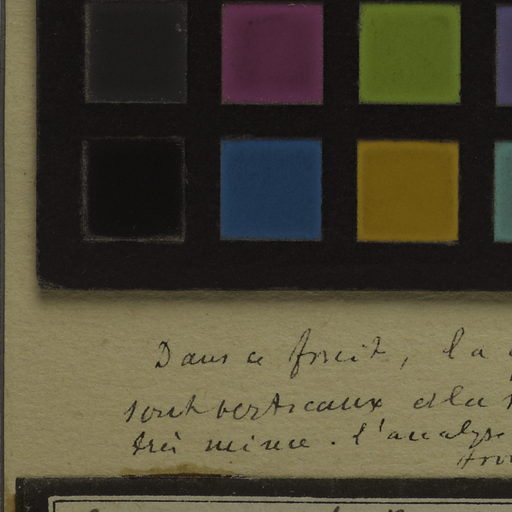 Dans ce fruit, la
sont verticaux et la
très mince. l'analyse